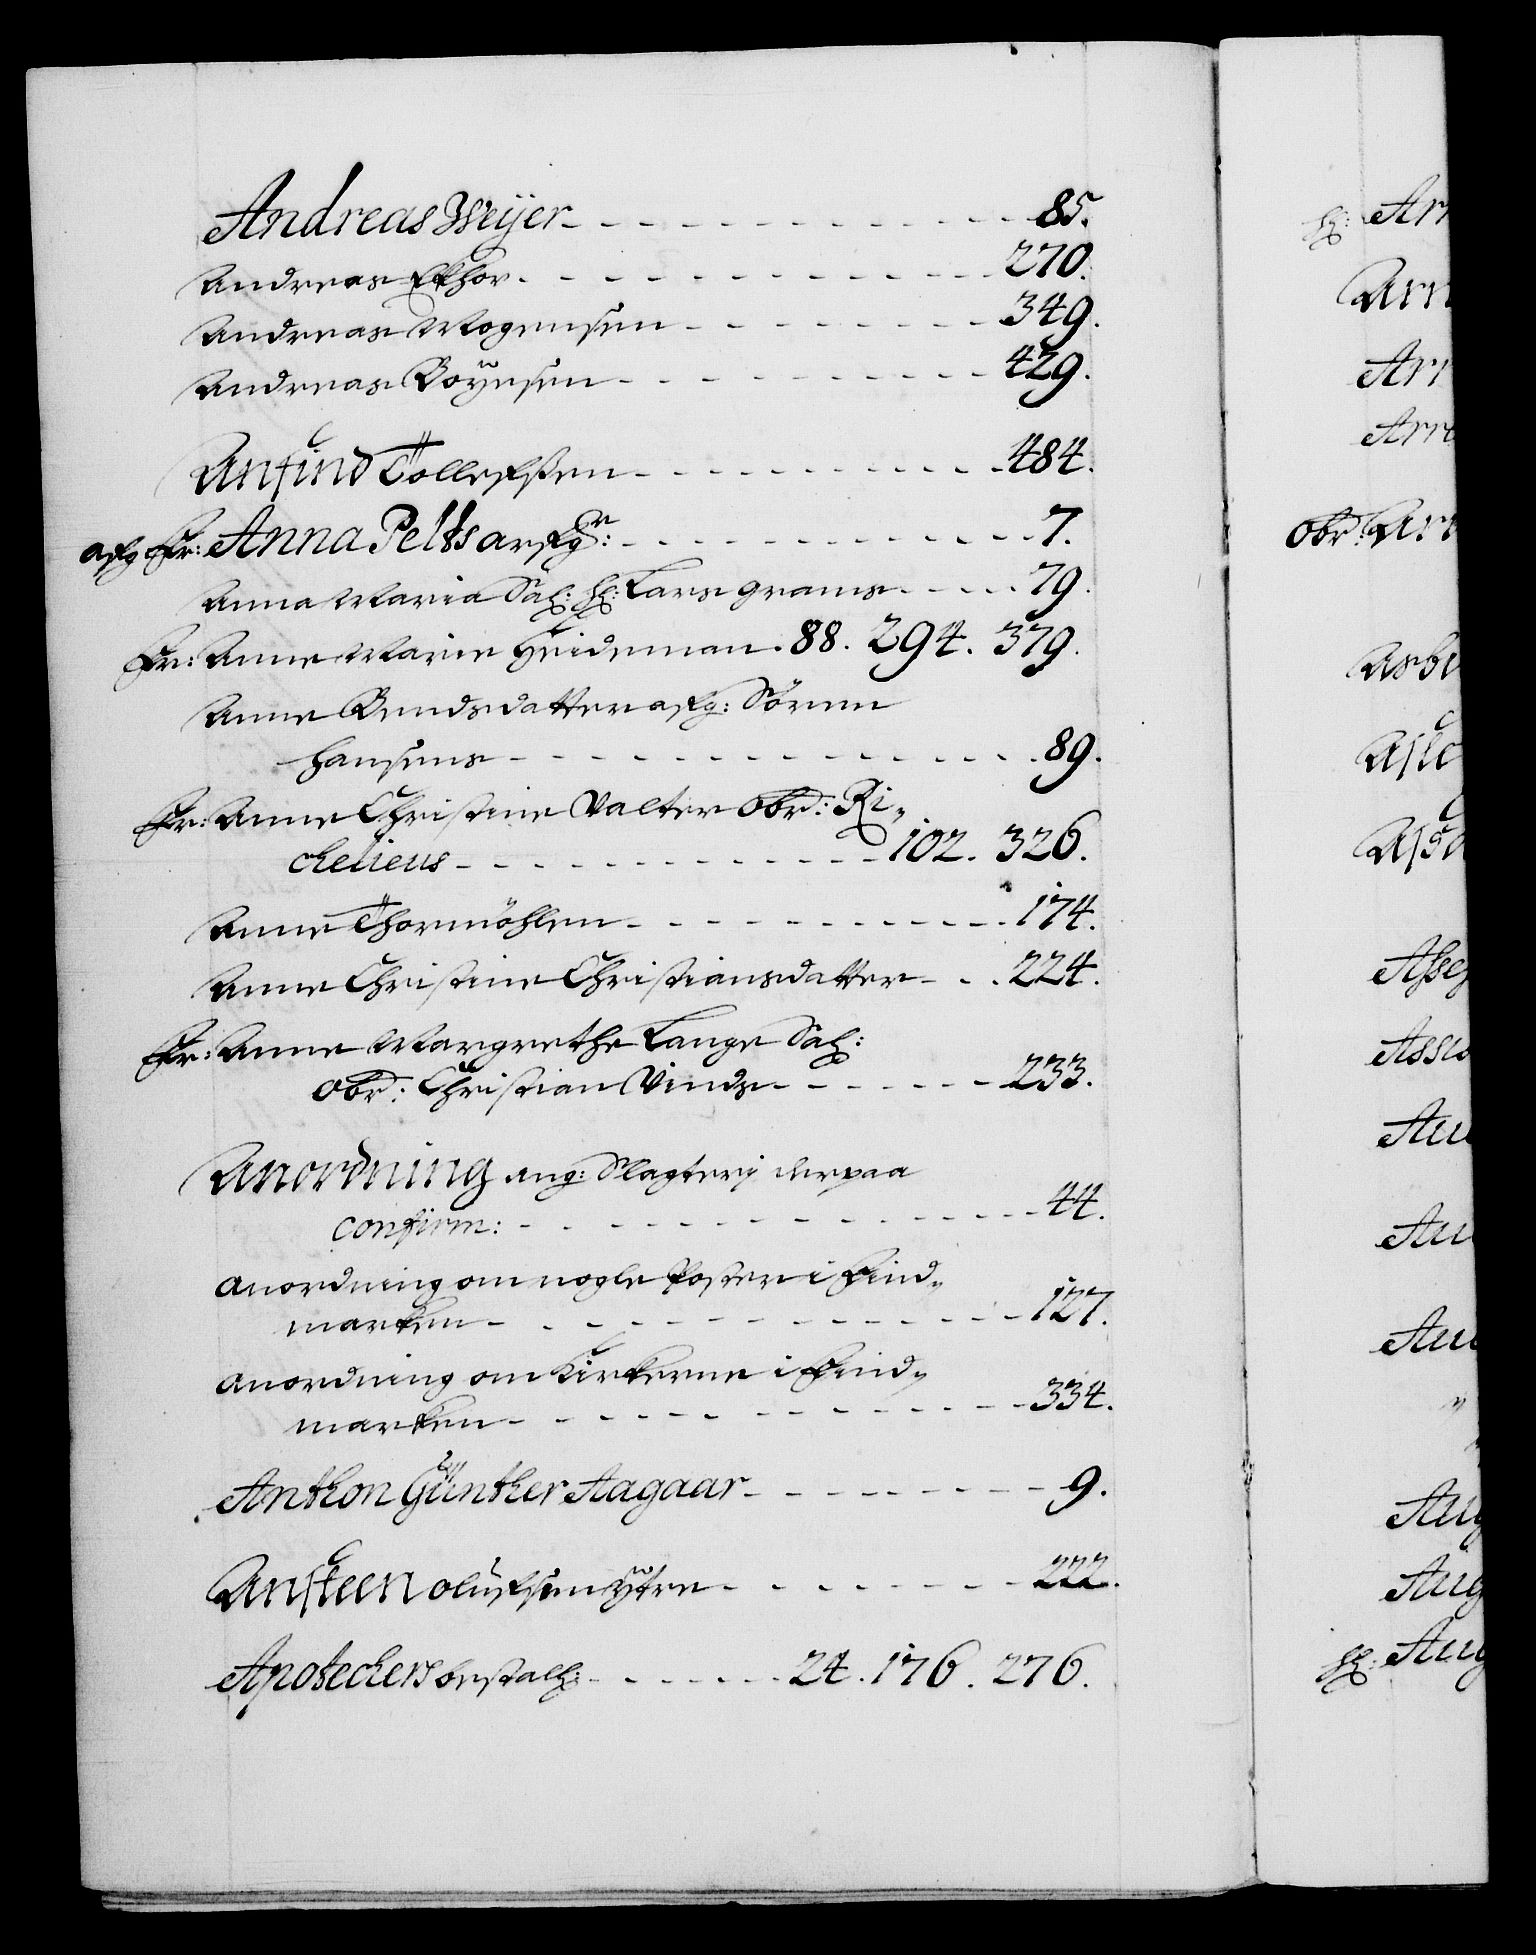 Andreas Weijer - - - - - - - - - - - 85.
Andreas Ekhor - - - - - - - - - - - 270.
Andreas Mogensen - - - - - - - - 349.
Andreas Boÿesen - - - - - - - - - 429.
Anfind Tollefssen - - - - - - - - - 484.
afg Fr: Anna Pelts arfgr: - - - - - - - - - - - 7.
Anna Maria Sal: Hr: Lars grams - - - - 79.
Fr: Anne Marie Heideman. 88. 294. 379.
Anne Bendsdatter afg: Sören
Hansens - - - - - - - - - - - - - 89.
Fr: Anne Christine Valter Obr: Ri„
chelieus - - - - - - - - - - 102. 326.
Anne Thormöhlen - - - - - - - - - 174.
Anne Christine Christiansdatter - - 224.
Fr: Anne Margrethe Lange Sal:
Obr: Christian Vinds - - - - - - 233.
Anordning ang: Slagterj derpaa
confirm: - - - - - - - - - - - - - 44.
anordning om nogle Poster i Find„
marken - - - - - - - - - - - - 127.
anordning om Kirkerne i Find„
marken - - - - - - - - - - - - 334.
Anthon Günther Aagaar - - - - - - - - 9.
Ansteen olufsen ÿtre - - - - - - - - 222.
Apotechers bestall: - - - - - 24. 176. 276.
Hr: Arn
Arn
Arr
Arre
Obr: Arr
Asbi
Asle
Assesj
Assis
Au
Au
Au
"
Aug
Aug
Hr: Aug